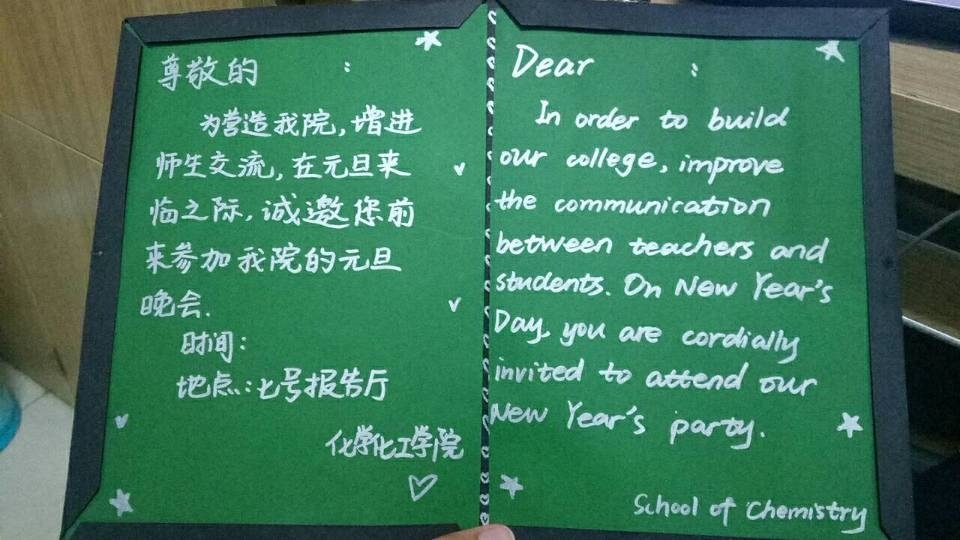 尊敬的 :
为营造我院,增进
师生交流,在元旦来
临之际,诚邀您前
来参加我院的元旦
晚会.
时间:
地点:七号报告厅
化学化工学院
Dear :
In order to build
our college, improve
the communication
between teachers and
students. On New Year's
Day, you are cordially
invited to attend our
New Year's party.
School of Chemistry